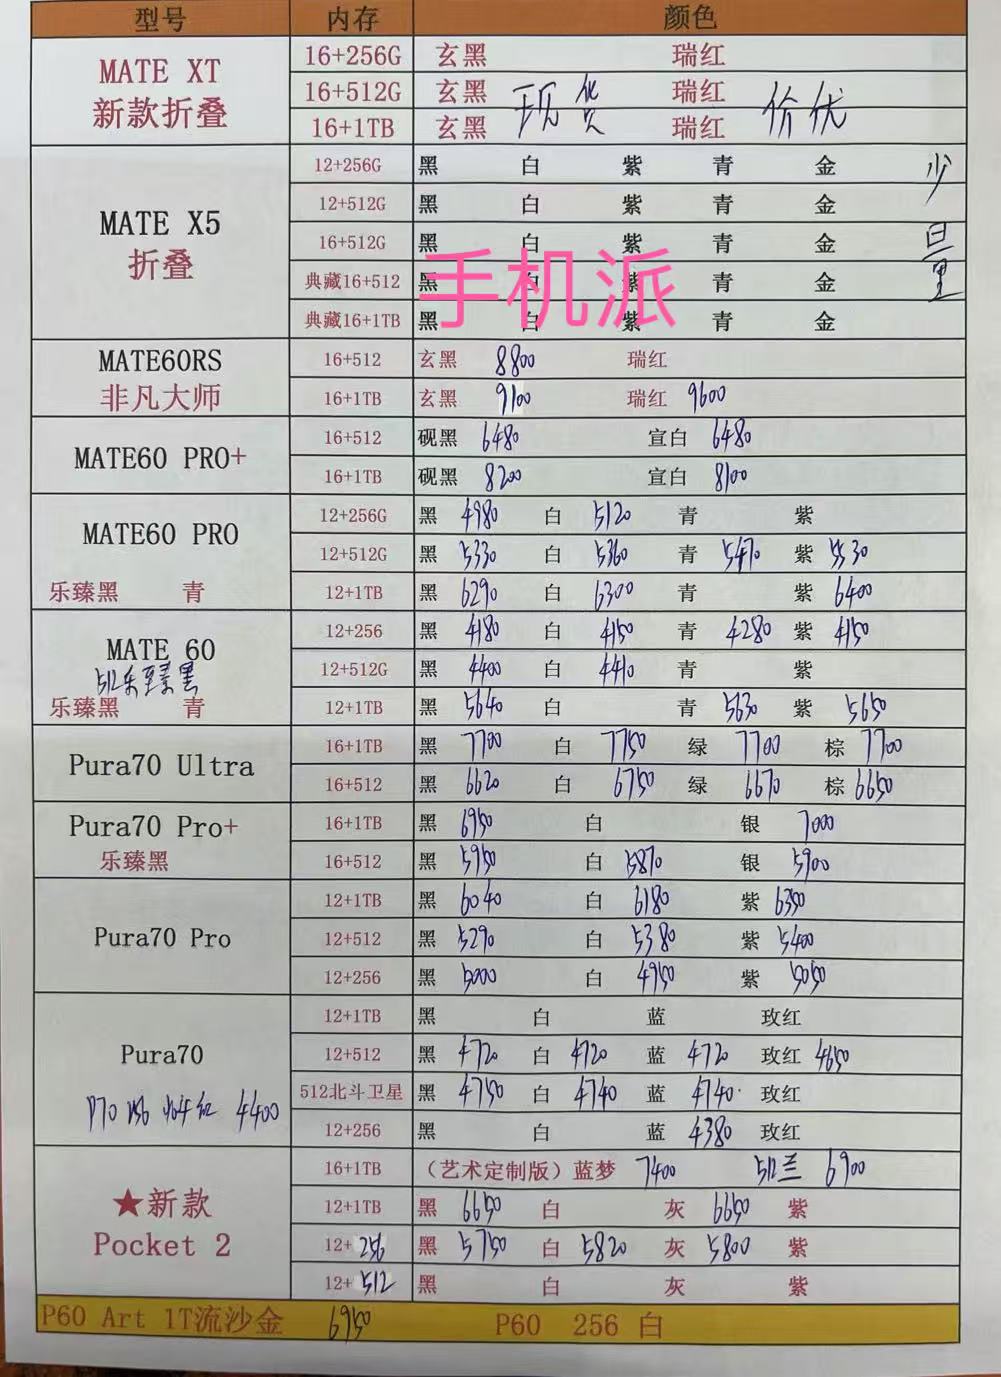 型号 内存 颜色
MATE XT 新款折叠 16+256G 玄黑 瑞红
16+512G 玄黑 瑞红
现货 价优
16+1TB 玄黑 瑞红
MATE X5 折叠 12+256G 黑 白 紫 青 金 少
12+512G 黑 白 紫 青 金
16+512G 黑 白 紫 青 金 量
典藏16+512 黑 白 紫 青 金
手机派
典藏16+1TB 黑 白 紫 青 金
MATE60RS 非凡大师 16+512 玄黑 8800 瑞红
16+1TB 玄黑 9100 瑞红 9600
MATE60 PRO+ 16+512 砚黑 6480 宣白 6480
16+1TB 砚黑 8200 宣白 8100
MATE60 PRO 12+256G 黑 4980 白 5120 青 紫
12+512G 黑 5330 白 5360 青 5470 紫 5530
乐臻黑 青 12+1TB 黑 6290 白 6300 青 紫 6400
MATE 60 12+256 黑 4180 白 4150 青 4280 紫 4150
512乐臻黑 12+512G 黑 4400 白 4410 青 紫
乐臻黑 青 12+1TB 黑 5640 白 青 5630 紫 5650
Pura70 Ultra 16+1TB 黑 7700 白 7750 绿 7700 棕 7700
16+512 黑 6620 白 6750 绿 6670 棕 6650
Pura70 Pro+ 16+1TB 黑 6950 白 银 7000
乐臻黑 16+512 黑 5950 白 5870 银 5900
Pura70 Pro 12+1TB 黑 6040 白 6180 紫 6350
12+512 黑 5290 白 5380 紫 5400
12+256 黑 5000 白 4950 紫 5050
Pura70 12+1TB 黑 白 蓝 玫红
12+512 黑 4720 白 4720 蓝 4720 玫红 4650
512北斗卫星 黑 4750 白 4740 蓝 4740 玫红
P70 4400
12+256 黑 白 蓝 4380 玫红
★新款 Pocket 2 16+1TB （艺术定制版）蓝梦 7400 512兰 6900
12+1TB 黑 6650 白 灰 6650 紫
12+256 黑 5750 白 5820 灰 5800 紫
12+512 黑 白 灰 紫
P60 Art 1T流沙金 6950 P60 256 白